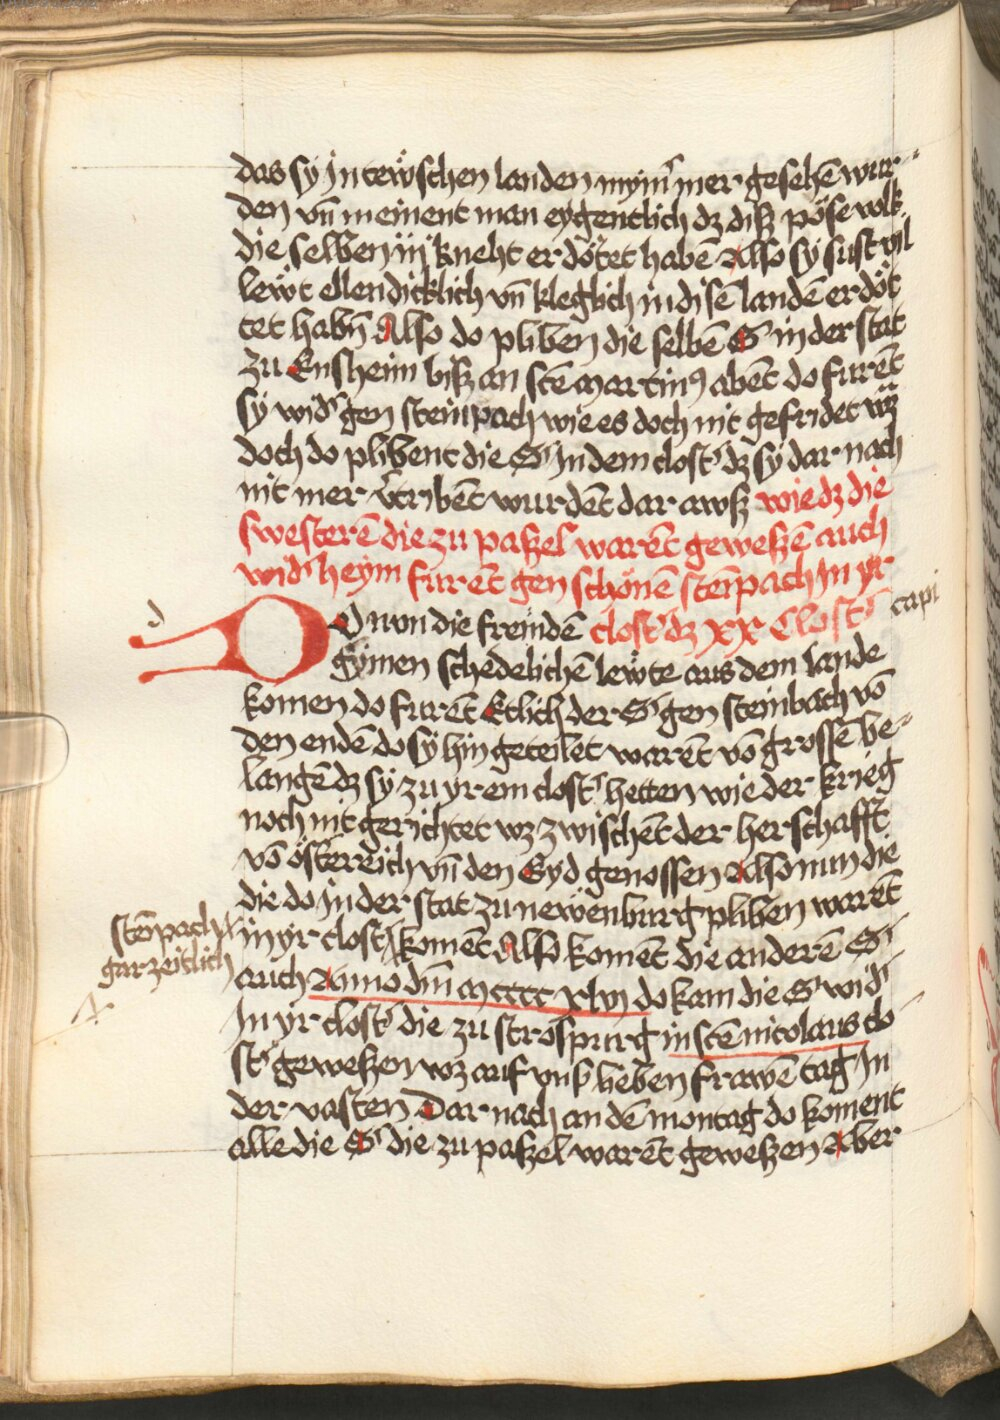 das sy Jn tewschen landen nymer mer gesehē wur-
den vn̄ meinent man eygentlich dz diß pöse volk
die selben iij kneht erdötet habē Also sy sust vil
lewt ellendicklich vn̄ kleglich in disē landē erdöt
tet habn̄ Also do pliben die selbē S in der stat
zu Ensheim biß an sct̄e martinꝰ abēt do furēt
sy widʾ gen steinpach wie es doch nit gefridet wz
doch do plibent die S Jn dem clostʾ dz sy dar nach
nit mer vʾtribēt wurdēt dar awß wie dz die
swesterē die zu paßel warēt geweßē auch
widʾ heym furēt gen schönē stēpach Jn yr
d
DO nvn die fremdē clostʾ dz XX Clostʾ capi
gymen schedelichē lewte aus dem lande
komen do furēt Etlich der S gen steinbach vō
den endē do sy hin geteilet warēt vō grossē be-
langē dz sy zu yrem clostʾ hetten wie der krieg
noch nit gerichtet wz zwischēt der herschafft
vō österreich vn̄ den Eyd genossen Also nun die
die do Jn der stat zu newenburg pliben warēt
in yr clostʾ komēt Also komēt die anderē S
stēpach
garzeitlich
auch Anno dm̄ mcccc xlvj do kam die S widʾ
Jn yr clostʾ die zu strospurg in sct̄e nicolaus clo-
stʾ geweßen wz auf vnsʾ lieben frawē tag Jn
der vasten Dar nach an dē montag do koment
alle die S die zu paßel warēt geweßen Aber